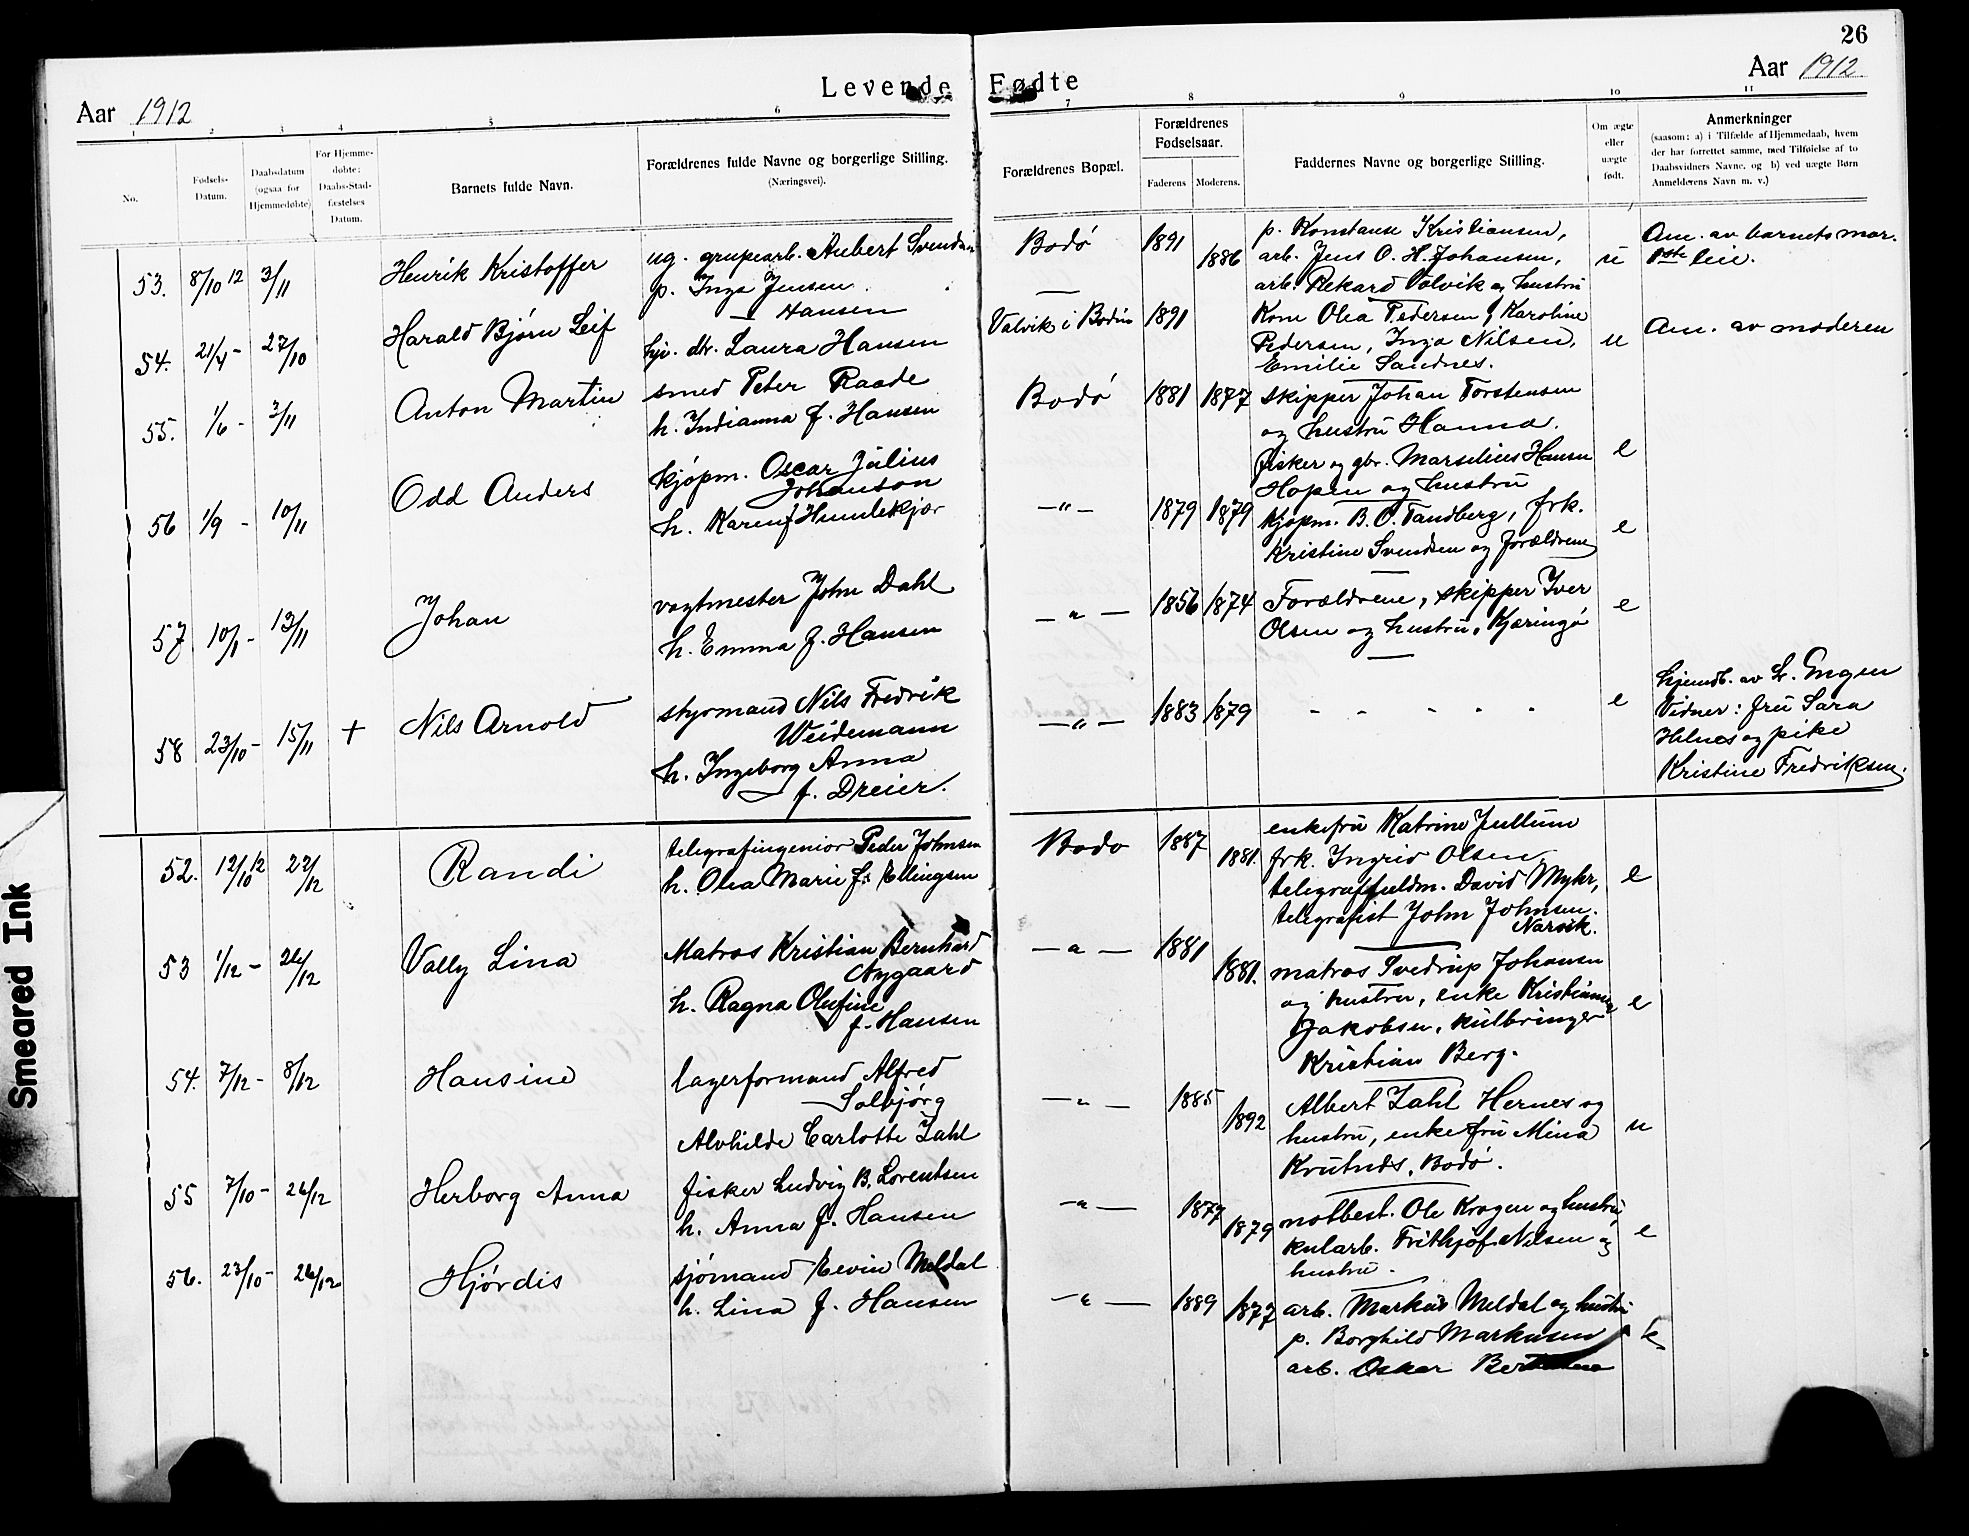 26
Levende Fødte
Aar 1912
Aar 1912.
1 2 3 4 5 6 7 8 9 10 11
No.
Fødsels-Datum.
Daabsdatum (ogsaa for Hjemmedøbte)
For Hjemme-døbte: Daabs-Stad-fæstelses Datum.
Barnets fulde Navn.
Forældrenes fulde Navne og borgerlige Stilling.
(Næringsvei).
Forældrenes Bopæl.
Forældrenes Fødselsaar.
Faderens Moderens.
Faddernes Navne og borgerlige Stilling.
Om ægte eller uægte født.
Anmerkninger
(saasom: a) i Tilfælde af Hjemmedaab, hvem
der har forrettet samme, med Tilføielse af to
Daabsvidners Navne, og b) ved uægte Børn
Anmelderens Navn m. v.)
53. 8/10 12 3/11 Henrik Kristoffer
ug. grupearb. Aubert Svendsen
p. Inga Jensen
Bodø 1891 1886
p. Konstanse Kristiansen,
arb. Jens O. H. Johansen,
arb. Rekard Valvik og hustru
u
Am. av barnets mor.
1ste leie.
54. 21/4 - 27/10 Harald Bjørn Leif
Hansen
hjv. dtr. Laura Hansen
Valvik i Bodin 1891
Kone Olea Pedersen, Karoline
Pedersen, Inga Nilsen,
Emilie Sandnes.
u
Am. av moderen
55. 1/6 - 3/11 Anton Martin
smed Peter Raade
h. Indianna f. Hansen
Bodø 1881 1877
skipper Johan Torstensen
og hustru Hanna.
fisker og gbr. Marselius Hansen
Hopen og hustru
e
56 1/9 - 10/11 Odd Anders
kjøpm. Oscar Julius
Johanson
h. Karen f. Hundekjær
-"- 1879 1879
kjøpm. B. O. Tandberg, frk.
Kristine Svendsen og forældrene
e
57 10/1 - 13/11 Johan
vagtmester John Dahl
h. Emma f. Hansen
-"- 1856 1874
Forældrene, skipper Iver
Olsen og hustru, Kjæringø
e
58 23/10 - 15/11 + Nils Arnold
styrmand Nils Fredrik
Weidemann
h. Ingeborg Anna
f. Dreier.
-"- 1883 1879
- - - - -
e
hjemdb. av Lr. Engen
Vidner: fru Sara
Helnes og pike
Kristine Fredriksen.
52. 12/10 12 22/12 Randi
telegrafingeniør Peder Johnsen
h. Olea Marie f. Ellingsen
Bodø 1887 1881.
enkefru Katrine Jullum
frk. Ingrid Olsen
telegraffuldm. David Myhr,
telegrafist John Johnsen.
Narvik.
e
53 1/12 - 26/12 Vally Lina
Matros Kristian Bernhard
Nygaard
h. Ragna Olufine
f. Hansen
-"- 1881 1881.
matros Sverdrup Johansen
og hustru, enke Kristianna
Jakobsen, kulbringer
Kristian Berg.
e
54. 7/12 - 8/12 Hansine
lagerformand Alfred
Solbjørg
Alvhilde Carlotte Zahl
-"- 1885 1892
Albert Zahl Hernes og
hustru, enkefru Mina
Krutnes, Bodø.
u
55 7/10 - 26/12 Herborg Anna
fisker Ludvig B. Lorentsen
h. Anna f. Hansen
-"- 1877 1879
notbest. Ole Krogen og hustru,
kularb. Frithjof Nilsen og
hustru.
e
56. 23/10 - 26/12 Hjørdis
sjømand Edvin Meldal
h. Lina f. Hansen
-"- 1889 1877
arb. Markus Meldal og hustru
p. Borghild Markusen
arb. Oskar
e
Smeared Ink